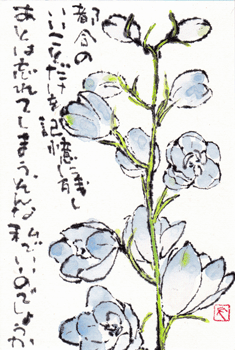 都合の
いいことだけを記憶に残し
あとは忘れてしまうそんな私でいいのでしょうか